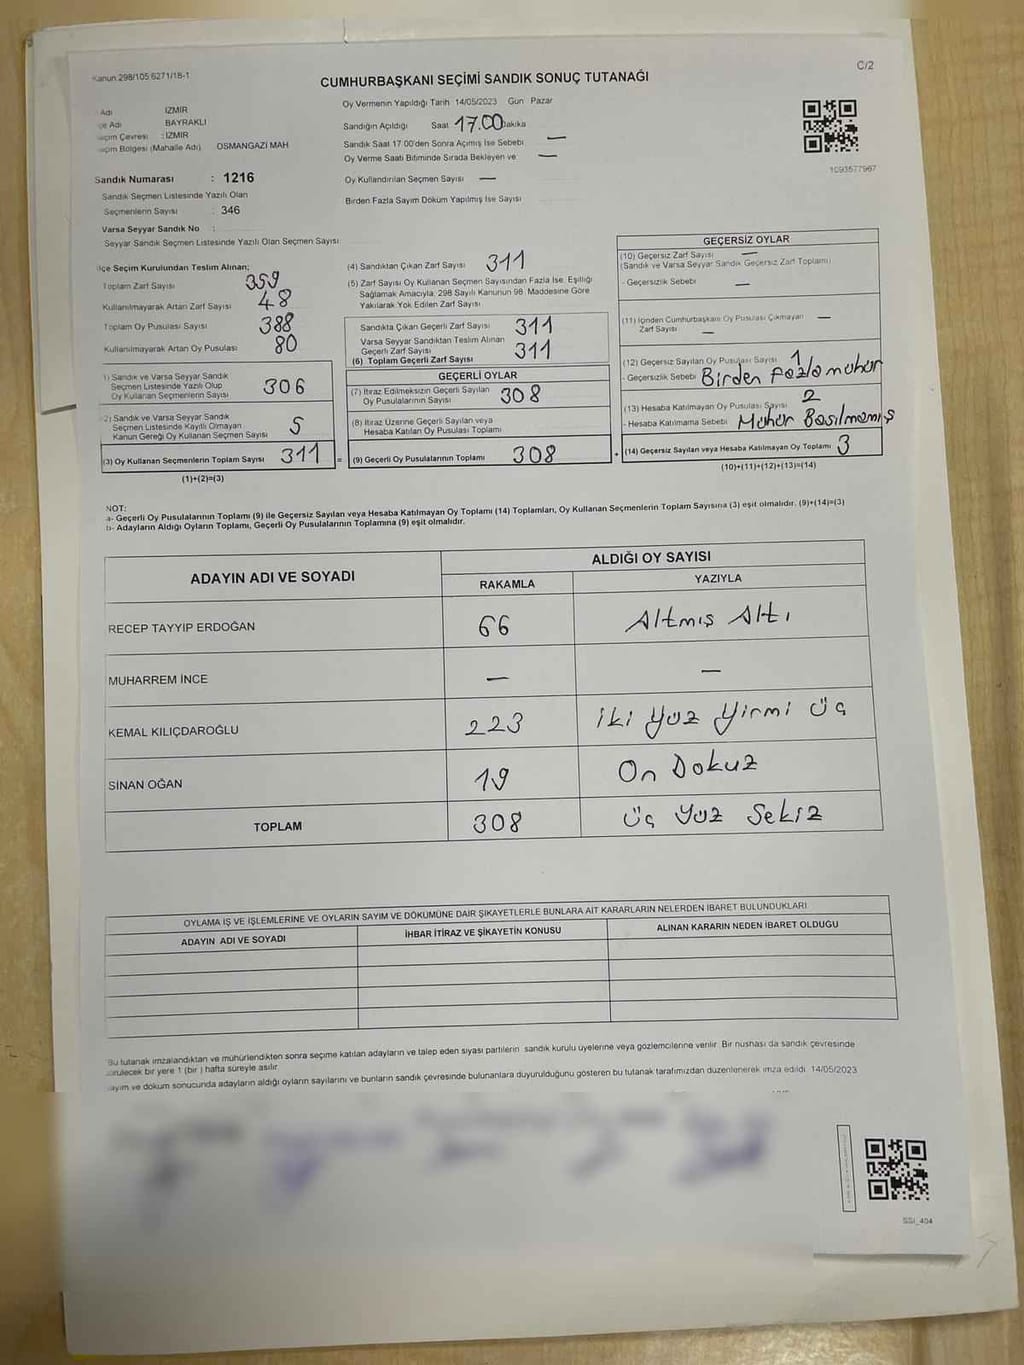 Kanun 298/105 6271/18-1
C/2
CUMHURBAŞKANI SEÇİMİ SANDIK SONUÇ TUTANAĞI
Adı İZMİR
İlçe Adı BAYRAKLI
Seçim Çevresi : İZMİR
Seçim Bölgesi (Mahalle Adı) OSMANGAZİ MAH
Sandık Numarası : 1216
Sandık Seçmen Listesinde Yazılı Olan
Seçmenlerin Sayısı : 346
Varsa Seyyar Sandık No :
Seyyar Sandık Seçmen Listesinde Yazılı Olan Seçmen Sayısı
Oy Vermenin Yapıldığı Tarih 14/05/2023 Gün Pazar
Sandığın Açıldığı Saat 17.00 Dakika
Sandık Saat 17 00'den Sonra Açımış İse Sebebi —
Oy Verme Saati Bitiminde Sırada Bekleyen ve —
Oy Kullandırılan Seçmen Sayısı —
Birden Fazla Sayım Döküm Yapılmış İse Sayısı
1093577967
İlçe Seçim Kurulundan Teslim Alınan;
Toplam Zarf Sayısı 359
Kullanılmayarak Artan Zarf Sayısı 48
Toplam Oy Pusulası Sayısı 388
Kullanılmayarak Artan Oy Pusulası 80
1) Sandık ve Varsa Seyyar Sandık
Seçmen Listesinde Yazılı Olup
Oy Kullanan Seçmenlerin Sayısı 306
2) Sandık ve Varsa Seyyar Sandık
Seçmen Listesinde Kayıtlı Olmayan
Kanun Gereği Oy Kullanan Seçmen Sayısı 5
(3) Oy Kullanan Seçmenlerin Toplam Sayısı 311 =
(1)+(2)=(3)
(4) Sandıktan Çıkan Zarf Sayısı 311
(5) Zarf Sayısı Oy Kullanan Seçmen Sayısından Fazla İse, Eşitliği
Sağlamak Amacıyla, 298 Sayılı Kanunun 98. Maddesine Göre
Yakılarak Yok Edilen Zarf Sayısı
Sandıkta Çıkan Geçerli Zarf Sayısı 311
Varsa Seyyar Sandıktan Teslim Alınan
Geçerli Zarf Sayısı
(6) Toplam Geçerli Zarf Sayısı 311
GEÇERLİ OYLAR
(7) İtiraz Edilmeksizin Geçerli Sayılan
Oy Pusulalarının Sayısı 308
(8) İtiraz Üzerine Geçerli Sayılan veya
Hesaba Katılan Oy Pusulası Toplamı
(9) Geçerli Oy Pusulalarının Toplamı 308 +
GEÇERSİZ OYLAR
(10) Geçersiz Zarf Sayısı —
(Sandık ve Varsa Seyyar Sandık Geçersiz Zarf Toplamı)
- Geçersizlik Sebebi —
(11) İçinden Cumhurbaşkanı Oy Pusulası Çıkmayan —
Zarf Sayısı —
(12) Geçersiz Sayılan Oy Pusulası Sayısı 1
- Geçersizlik Sebebi Birden fazla mühür
(13) Hesaba Katılmayan Oy Pusulası Sayısı 2
- Hesaba Katılmama Sebebi Mühür Basılmamış
(14) Geçersiz Sayılan veya Hesaba Katılmayan Oy Toplamı 3
(10)+(11)+(12)+(13)=(14)
NOT:
a- Geçerli Oy Pusulalarının Toplamı (9) ile Geçersiz Sayılan veya Hesaba Katılmayan Oy Toplamı (14) Toplamları, Oy Kullanan Seçmenlerin Toplam Sayısına (3) eşit olmalıdır. (9)+(14)=(3)
b- Adayların Aldığı Oyların Toplamı, Geçerli Oy Pusulalarının Toplamına (9) eşit olmalıdır.
ADAYIN ADI VE SOYADI ALDIĞI OY SAYISI
RAKAMLA YAZIYLA
RECEP TAYYIP ERDOĞAN 66 Altmış Altı
MUHARREM İNCE — —
KEMAL KILIÇDAROĞLU 223 İki Yüz Yirmi Üç
SİNAN OĞAN 19 On Dokuz
TOPLAM 308 Üç Yüz Sekiz
OYLAMA İŞ VE İŞLEMLERİNE VE OYLARIN SAYIM VE DÖKÜMÜNE DAİR ŞİKAYETLERLE BUNLARA AİT KARARLARIN NELERDEN İBARET BULUNDUKLARI
ADAYIN ADI VE SOYADI İHBAR İTİRAZ VE ŞİKAYETİN KONUSU ALINAN KARARIN NEDEN İBARET OLDUĞU
Bu tutanak imzalandıktan ve mühürlendikten sonra seçime katılan adayların ve talep eden siyasi partilerin sandık kurulu üyelerine veya gözlemcilerine verilir. Bir nushası da sandık çevresinde
görülecek bir yere 1 (bir) hafta süreyle asılır
Sayım ve döküm sonucunda adayların aldığı oyların sayılarını ve bunların sandık çevresinde bulunanlara duyurulduğunu gösteren bu tutanak tarafımızdan düzenlenerek imza edildi 14/05/2023
SSI_404